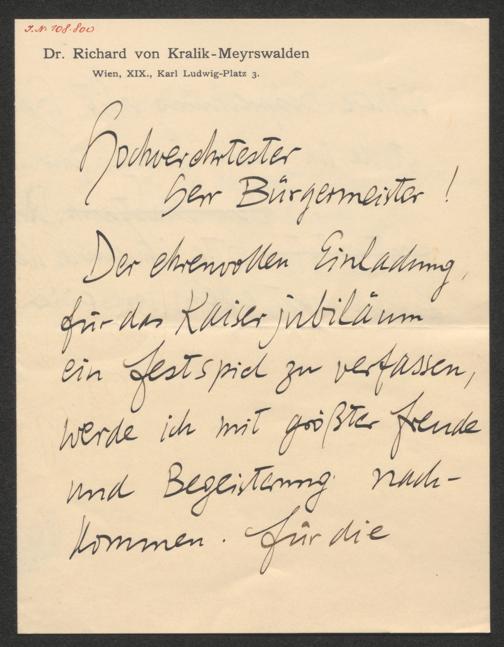 J.N. 108.800
Dr. Richard von Kralik-Meyrswalden
Wien, XIX., Karl Ludwig-Platz 3.
Hochverehrtester
Herr Bürgermeister!
Der ehrenvollen Einladung,
für das Kaiserjubiläum
ein Festspiel zu verfassen,
werde ich mit größter Freude
und Begeisterung nach-
kommen. Für die